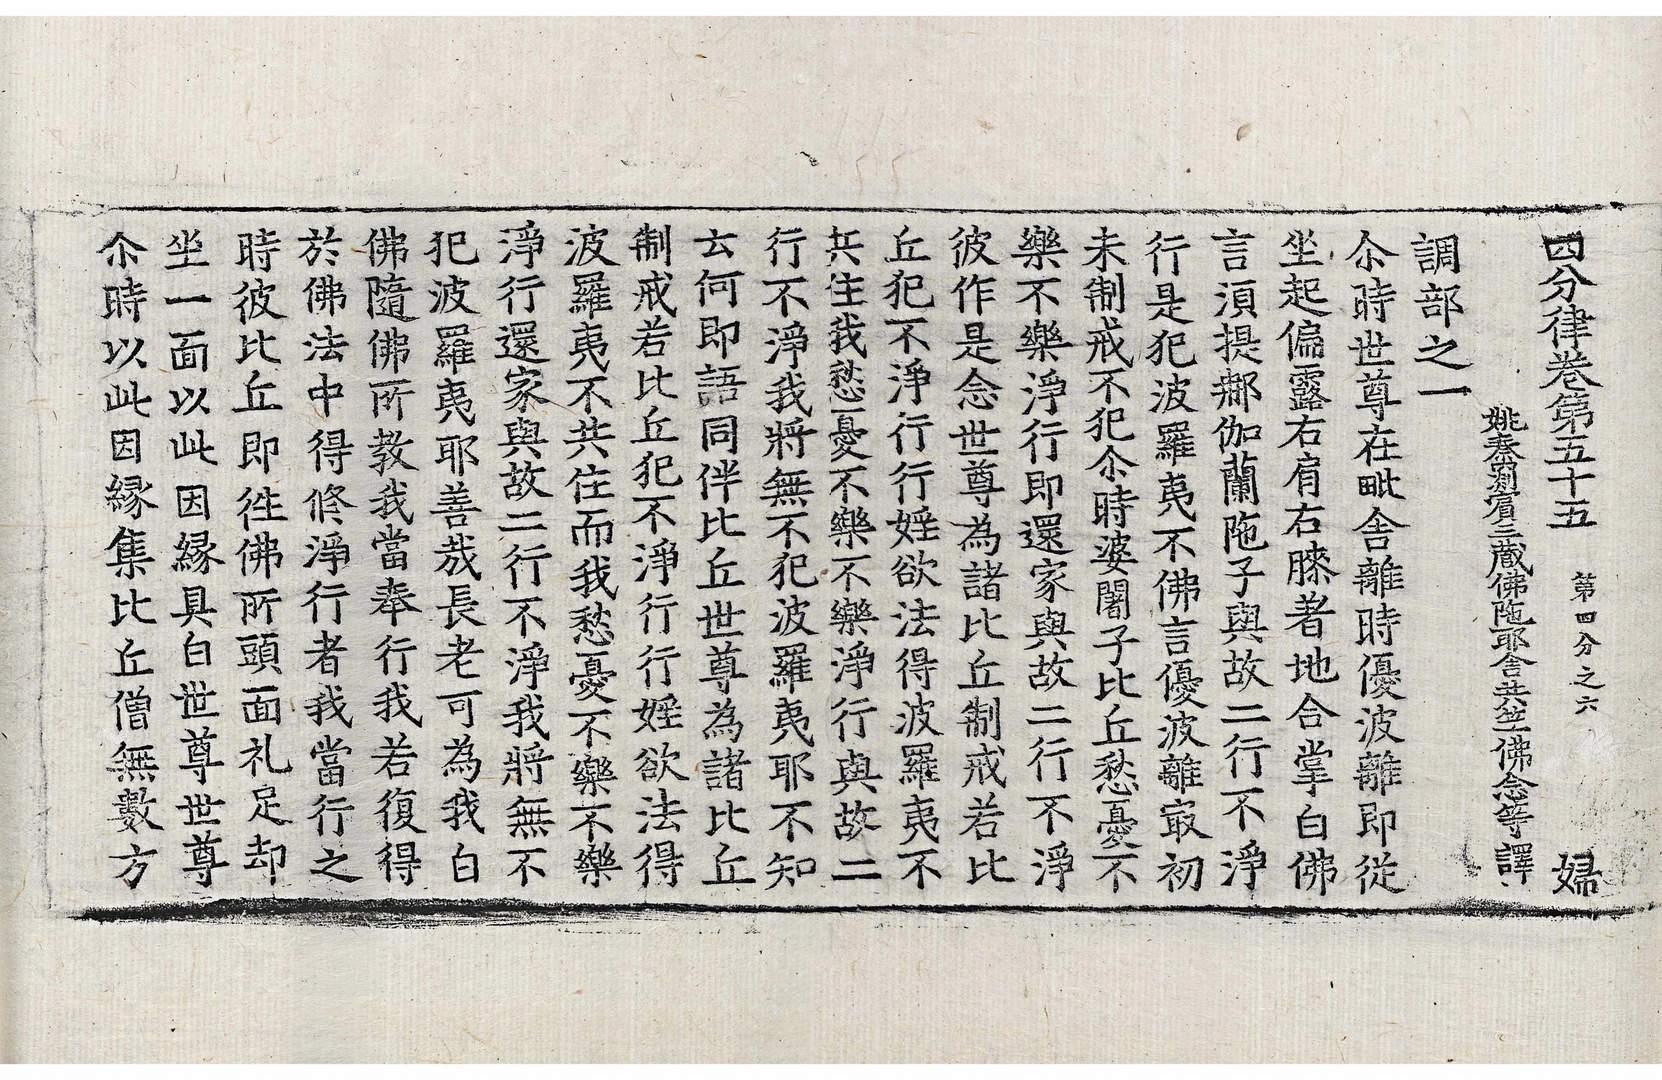 四分律卷第五十五 第四分之六 婦
姚秦罽賓三藏佛陁耶舍共竺佛念等譯
調部之一
尒時世尊在毗舍離時優波離即從
坐起偏露右肩右膝著地合掌白佛
言湏提鄰伽蘭陁子與故二行不淨
行是犯波羅夷不佛言優波離冣初
未制戒不犯尒時婆闍子比丘愁憂不
樂不樂淨行即還家與故二行不淨
彼作是念世尊為諸比丘制戒若比
丘犯不淨行行婬欲法得波羅夷不
共住我愁憂不樂不樂淨行與故二
行不淨我將無不犯波羅夷耶不知
云何即語同伴比丘世尊為諸比丘
制戒若比丘犯不淨行行婬欲法得
波羅夷不共住而我愁憂不樂不樂
淨行還家與故二行不淨我將無不
犯波羅夷耶善哉長老可為我白
佛隨佛所教我當奉行我若復得
於佛法中得修淨行者我當行之
時彼比丘即徃佛所頭面礼足却
坐一面以此因緣具白世尊世尊
尒時以此因緣集比丘僧無數方